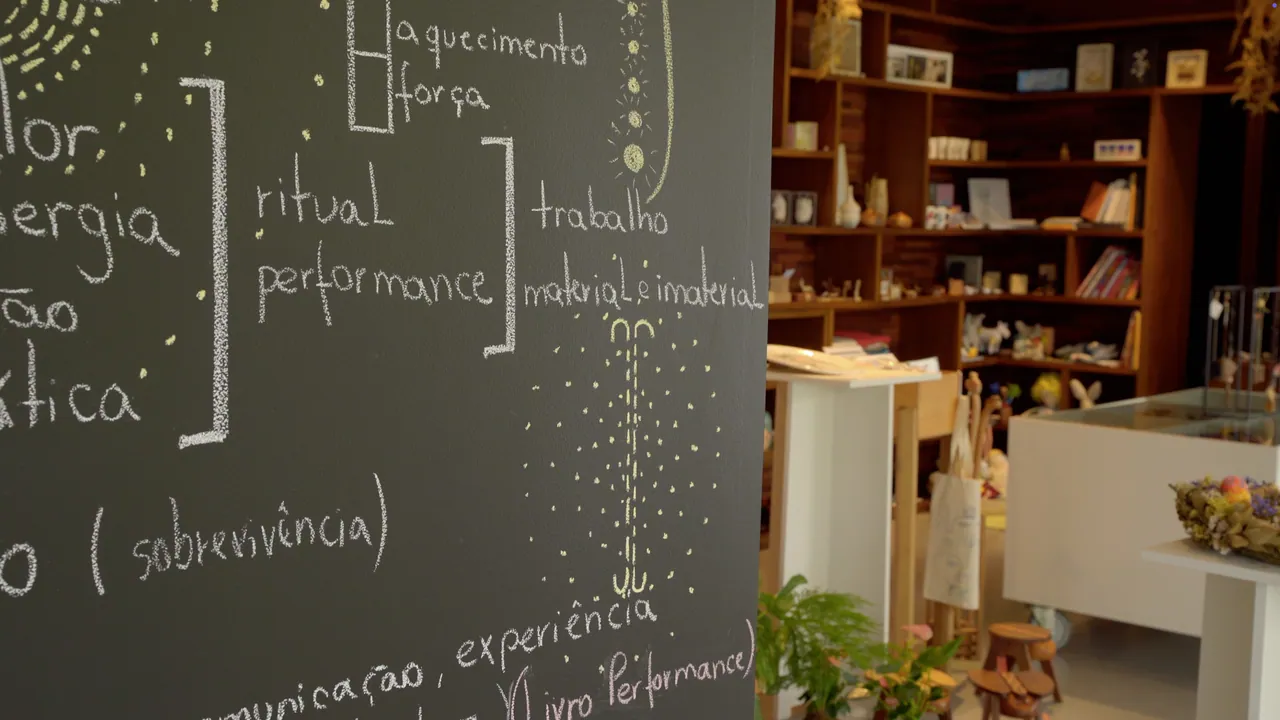 aquecimento
força
lor
ritual
trabalho
nergia
performance
material e imaterial
ão
ática
o (sobrevivência)
municação, experiência
(Livro Performance)